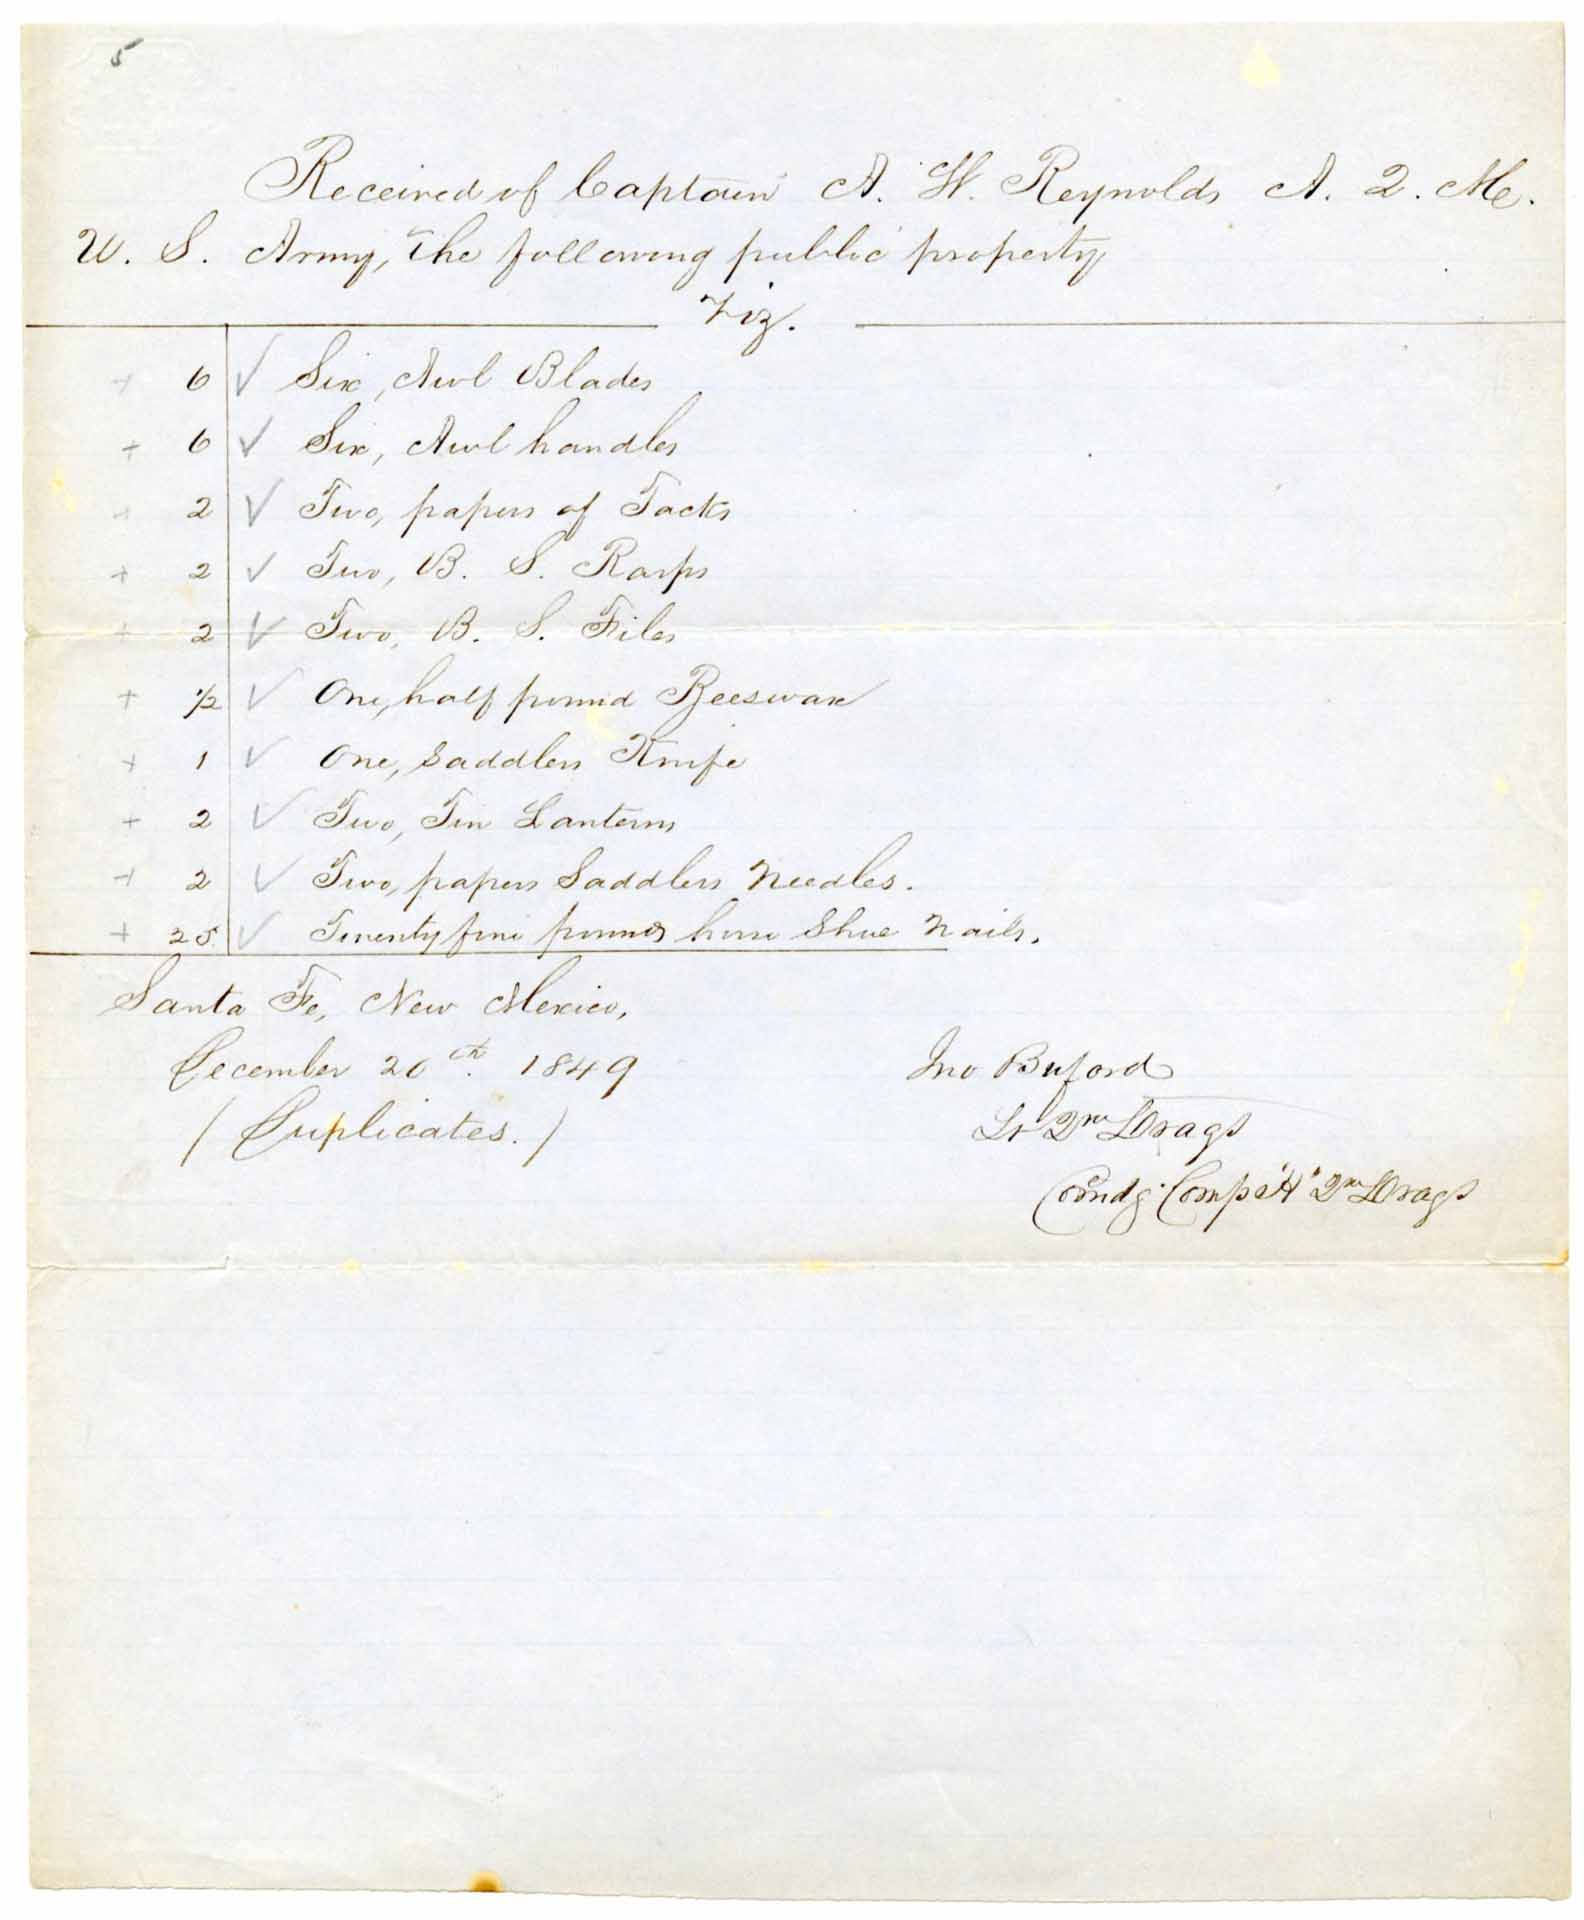 5
Received of Captain A. W. Reynolds A. Q. M.
U. S. Army, the following public property
Viz.
+ 6 ✓ Six, Awl Blades
+ 6 ✓ Six, Awl handles
+ 2 ✓ Two, papers of Tacks
+ 2 ✓ Two, B. S. Rasps
+ 2 ✓ Two, B. S. Files
+ 1/2 ✓ One, half pound Beeswax
+ 1 ✓ One, Saddlers Knife
+ 2 ✓ Two, Tin Lanterns
+ 2 ✓ Two, papers Saddlers Needles.
+ 25 ✓ Twenty five pounds horse Shoe Nails.
Santa Fe, New Mexico,
December 20th. 1849
/ Duplicates. /
Jno Buford
Lt 2nd Drags
Comdg. Comp "H" 2nd Drags